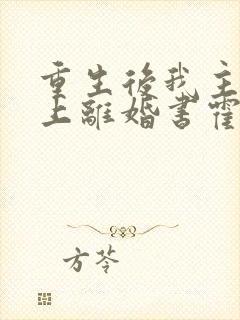 重生後我主
上離婚書霍
方苓